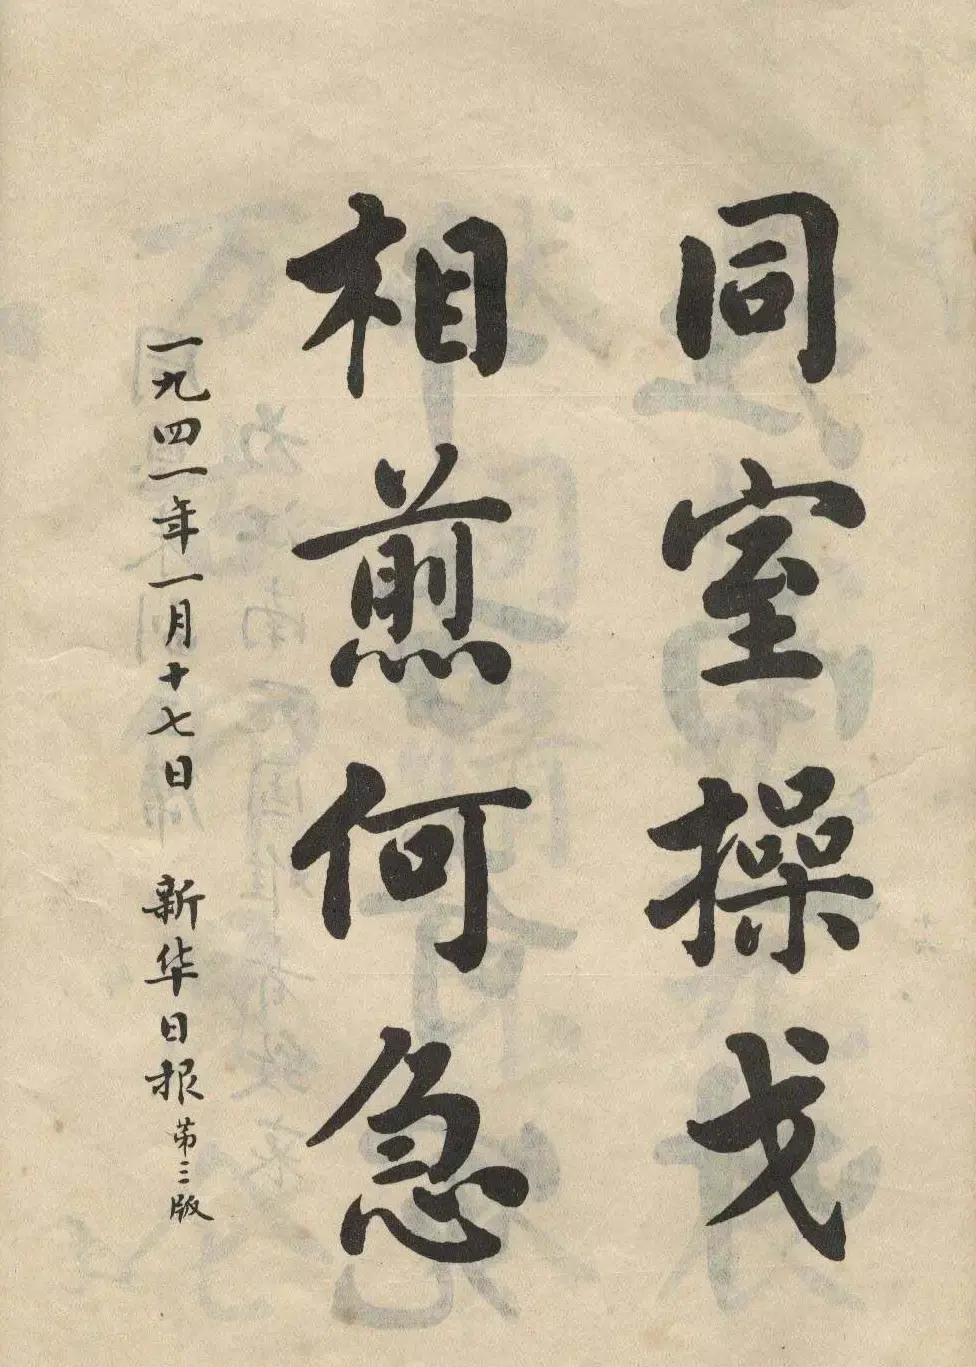 同室操戈
相煎何急
一九四一年一月十七日 新华日报 第三版